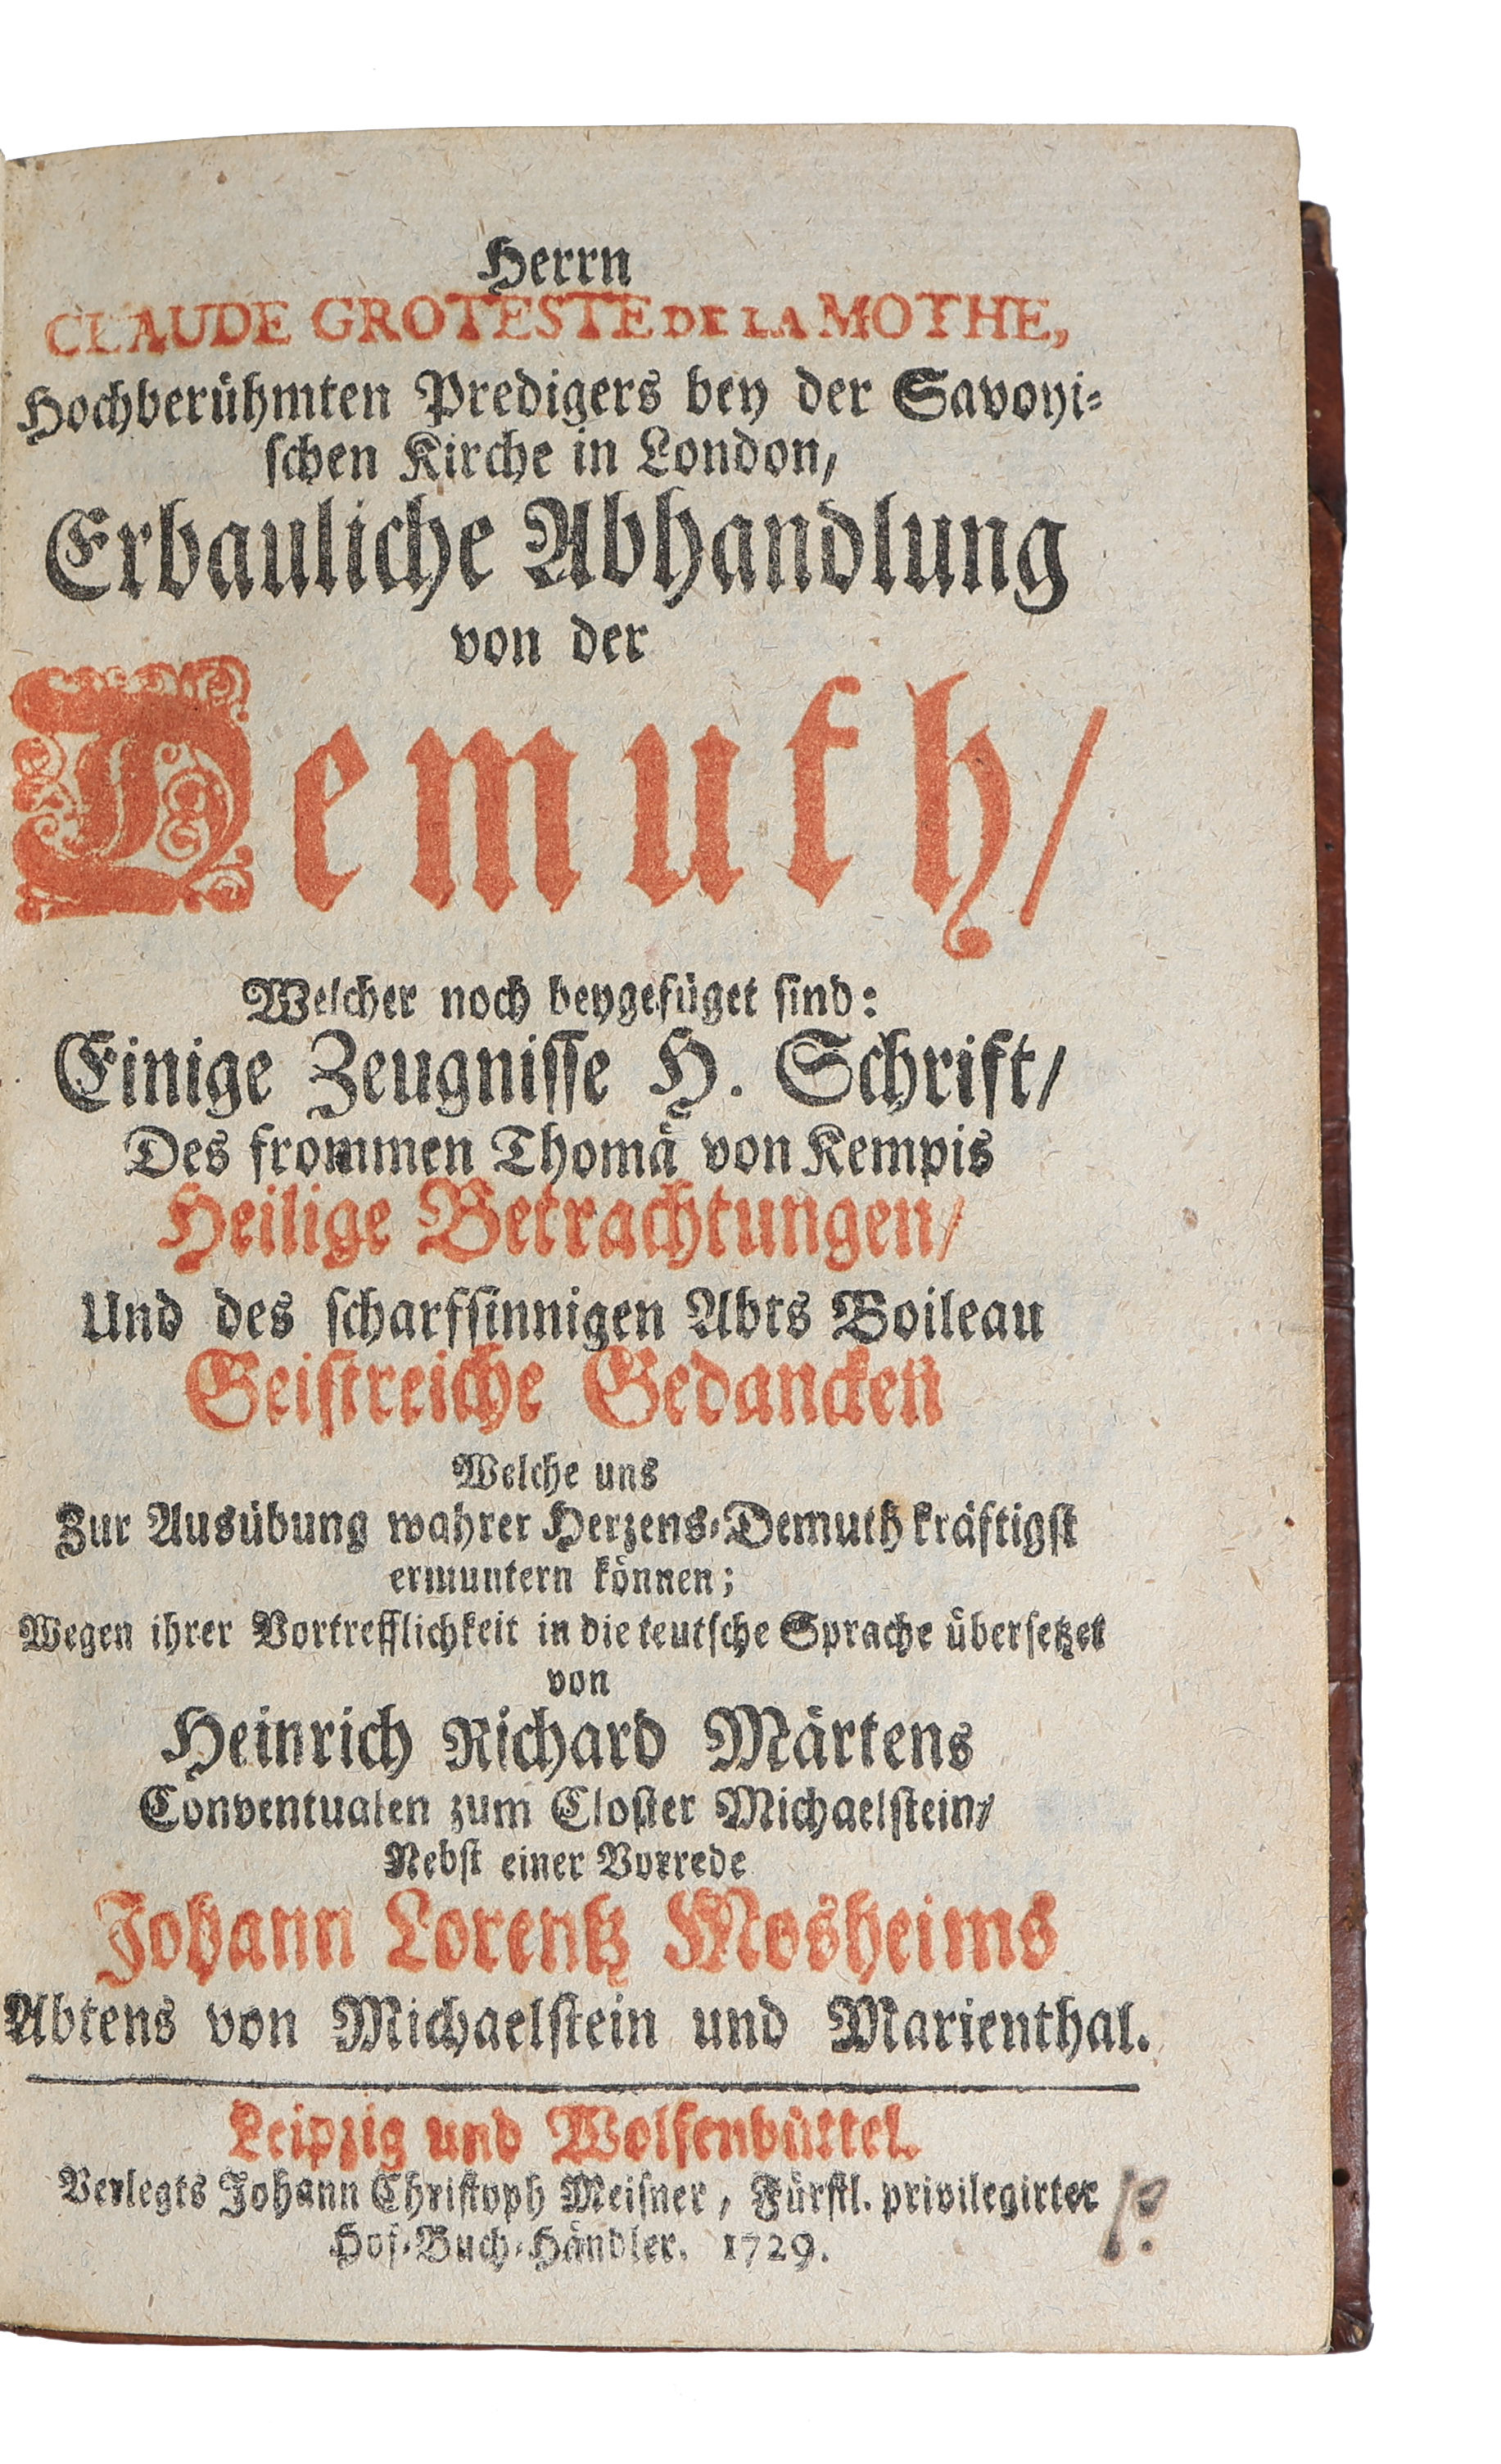 Herrn
CLAUDE GROTESTE DE LA MOTHE,
Hochberühmten Predigers bey der Savoyi-
schen Kirche in London,
Erbauliche Abhandlung
von der
Demuth/
Welcher noch beygefüget sind:
Einige Zeugnisse H. Schrift/
Des frommen Thomä von Kempis
Heilige Betrachtungen/
Und des scharfsinnigen Abts Boileau
Geistreiche Gedancken
Welche uns
Zur Ausübung wahrer Herzens-Demuth kräftigst
ermuntern können;
Wegen ihrer Vortrefflichkeit in die teutsche Sprache übersetzet
von
Heinrich Richard Märtens
Conventualen zum Closter Michaelstein/
Nebst einer Vorrede
Johann Lorentz Mosheims
Abtens von Michaelstein und Marienthal.
Leipzig und Wolfenbüttel.
Verlegts Johann Christoph Meisner, Fürstl. privilegirter
Hof-Buch-Händler. 1729.